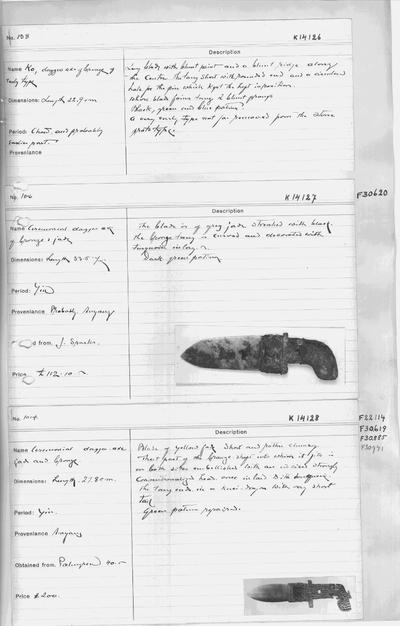 No. 103
K14126
Description
Name Ko, dagger axe of bronze of
early type
Dimensions: Length 22.9 cm
Period: Chou, and probably
earlier part.
Provenance
Long blade with blunt point and a blunt ridge along
the centre. The tang short with rounded end and a circular
hole for the pin which kept the haft in position.
Where blade joins tang 2 blunt prongs.
Black, green and blue patina
A very early type not far removed from the stone
prototype.
K14127
F30620
Description
Name Ceremonial dagger axe
of bronze & jade
Dimensions: Length 33.5
Period: Yin
Provenance Probably Anyang
d from. J. Sparks.
Price £112.10.
The blade is of grey jade streaked with black.
the bronze tang is curved and decorated with
turquoise inlay.
Dark green patina
No. 104
K14128
F22114
F30619
F30885
Description
Name Ceremonial dagger axe
jade and bronze
Dimensions: Length. 27.80 m.
Period: Yin.
Provenance Anyang
Obtained from. Palmgren
Price £200.
Blade of yellow jade short and rather clumsy.
That part of the bronze shaft into which it fits is
on both sides embellished with an incised strongly
conventionalized head, once inlaid with turquoise
The tang ends in a kuei dragon with very short
tail
Green patina repaired.